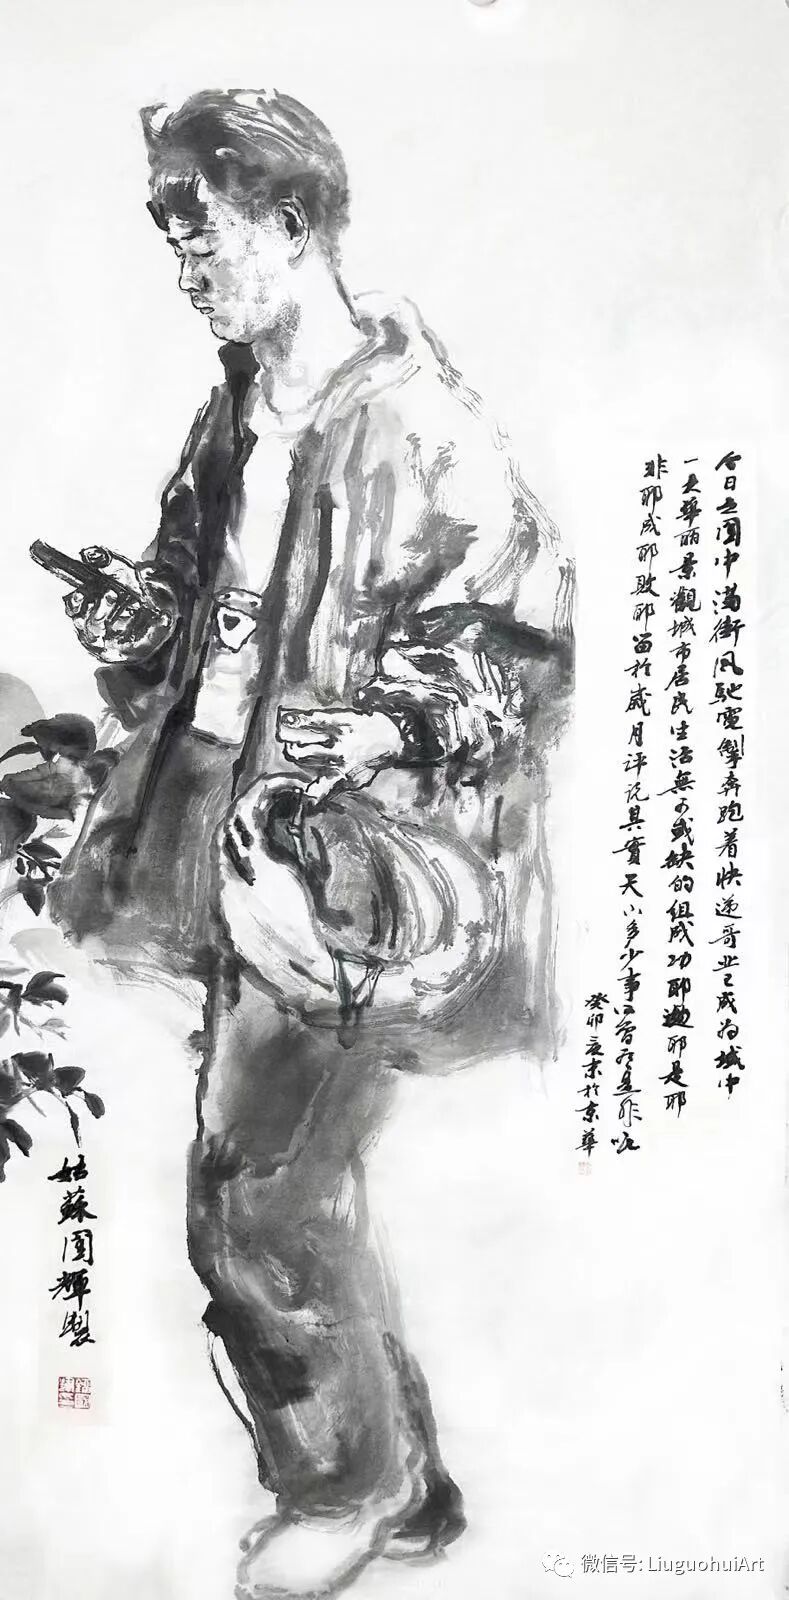 今日之国中满街风驰電掣奔跑着快递哥业已成为城中
一大華丽景觀城市居民生活無可或缺的组成功耶过耶是耶
非耶成耶败耶留於岁月评说其實天下多少事何曾有是非呢
癸卯 末於京華
姑蘇國輝製
微信号: LiuguohuiArt